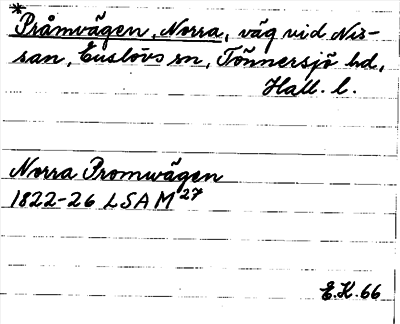 *Pråmvägen, Norra, väg vid Nis-
san, Enslövs sn, Tönnersjö hd,
Hall. l.
Norra Promwägen
1822-26 LSA M 27
E.H. 66